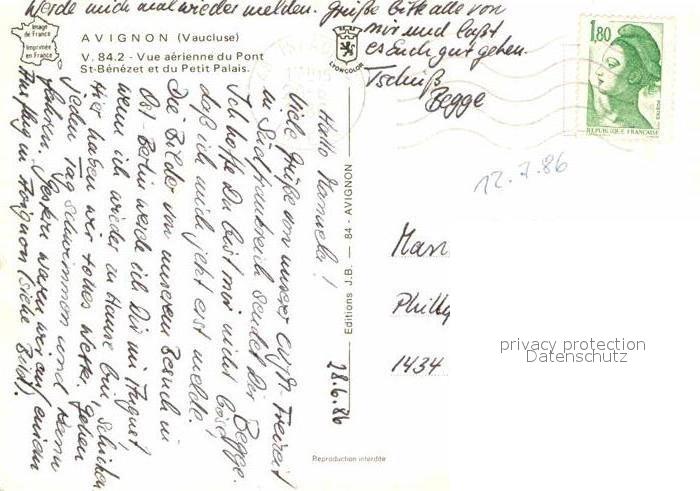 werde mich mal wieder melden. Grüße bitte alle von
mir und laßt
es Euch gut gehen.
Tschüß
Begge
Image
de France
Imprimée
en France
AVIGNON (Vaucluse)
V. 84.2 - Vue aérienne du Pont
St-Bénézet et du Petit Palais.
LYONCOLOR
1,80
REPUBLIQUE FRANÇAISE
12.7.86
28.6.86
Hallo Manuela!
Viele Grüße von unserer CVJM-Freizeit
in Südfrankreich sendet Dir Begge.
Ich hoffe Du bist mir nicht böse,
daß ich mich jetzt erst melde.
Die Bilder von unserem Besuch in
Ost-Berlin werde ich Dir im August
wenn ich wieder zu Hause bin, schicken.
Hier haben wir tolles Wetter. Gehen
jeden Tag schwimmen und Kanu
fahren. Gestern waren wir auf einem
Ausflug in Avignon (siehe Bild).
Editions J.B. — 84 - AVIGNON
Man
Philly
1434
privacy protection
Datenschutz
Reproduction interdite